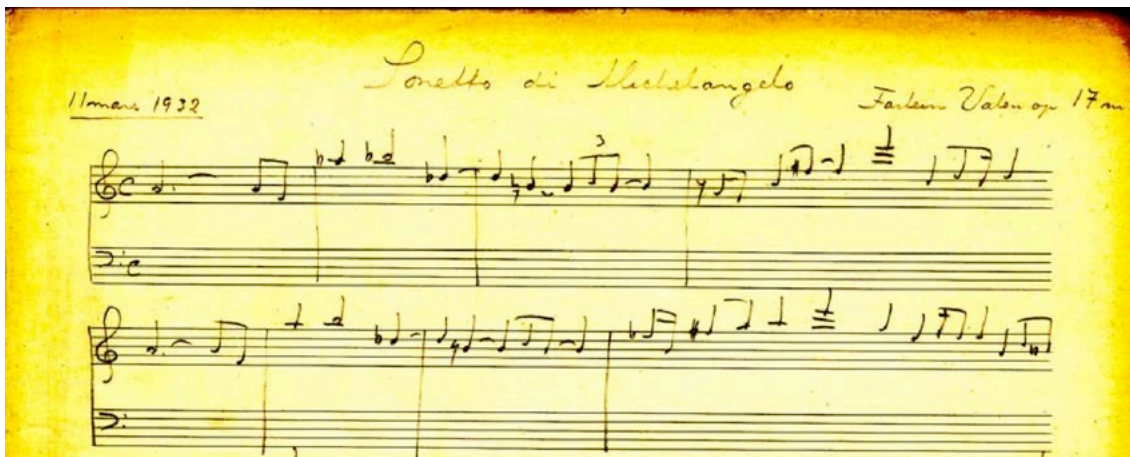 Sonetto di Michelangelo
11 mars 1932
Fartein Valen op 17
3